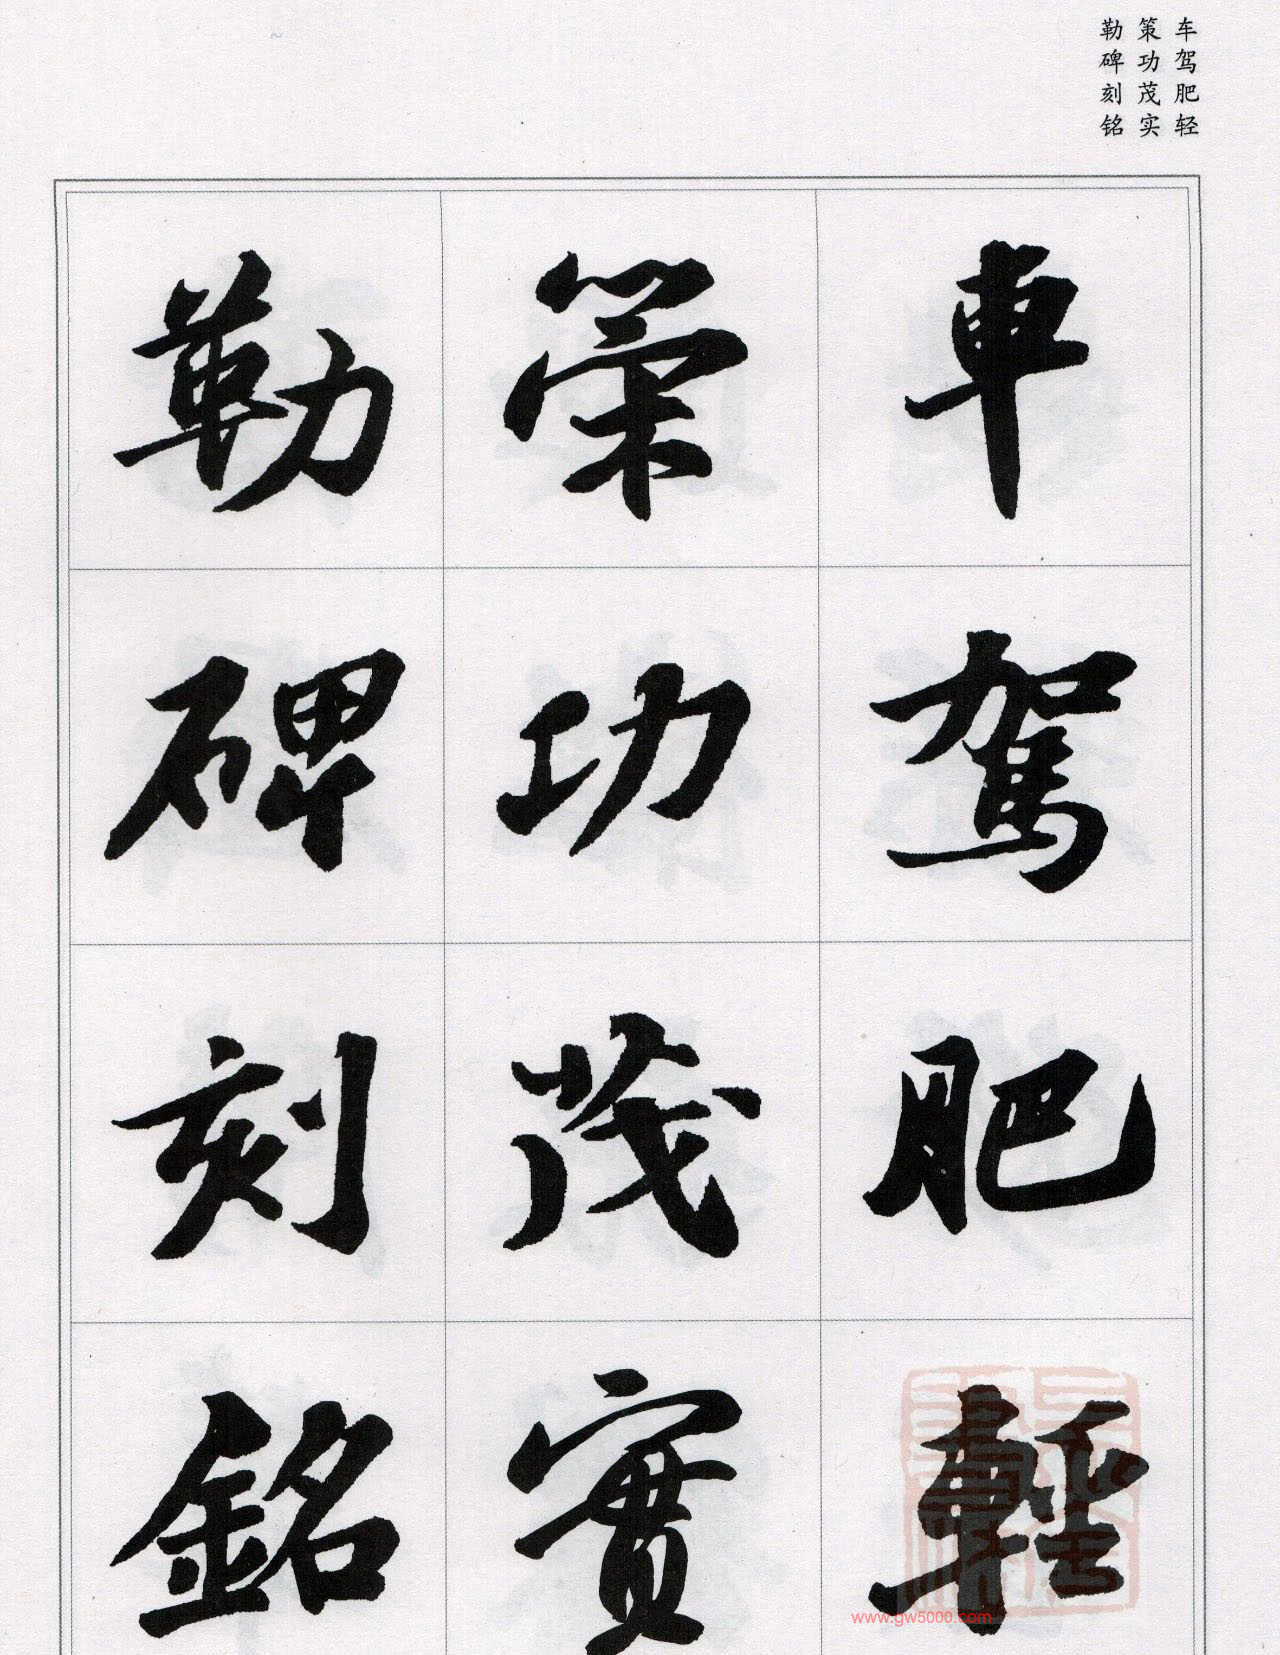 车驾肥轻
策功茂实
勒碑刻铭
車駕肥輕
策功茂實
勒碑刻銘
www.gw5000.com